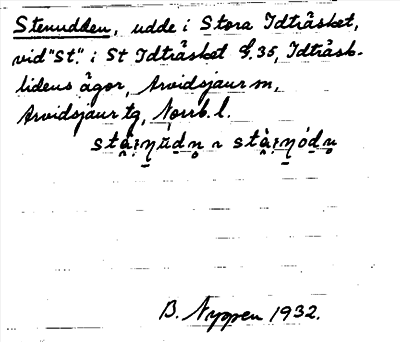 Stenudden, udde i Stora Idträsket,
vid "St." i St Idträsket S.35, Idträsk-
lidens ägor, Arvidsjaur sn,
Arvidsjaur tg, Norrb. l.
B. Nyppen 1932.